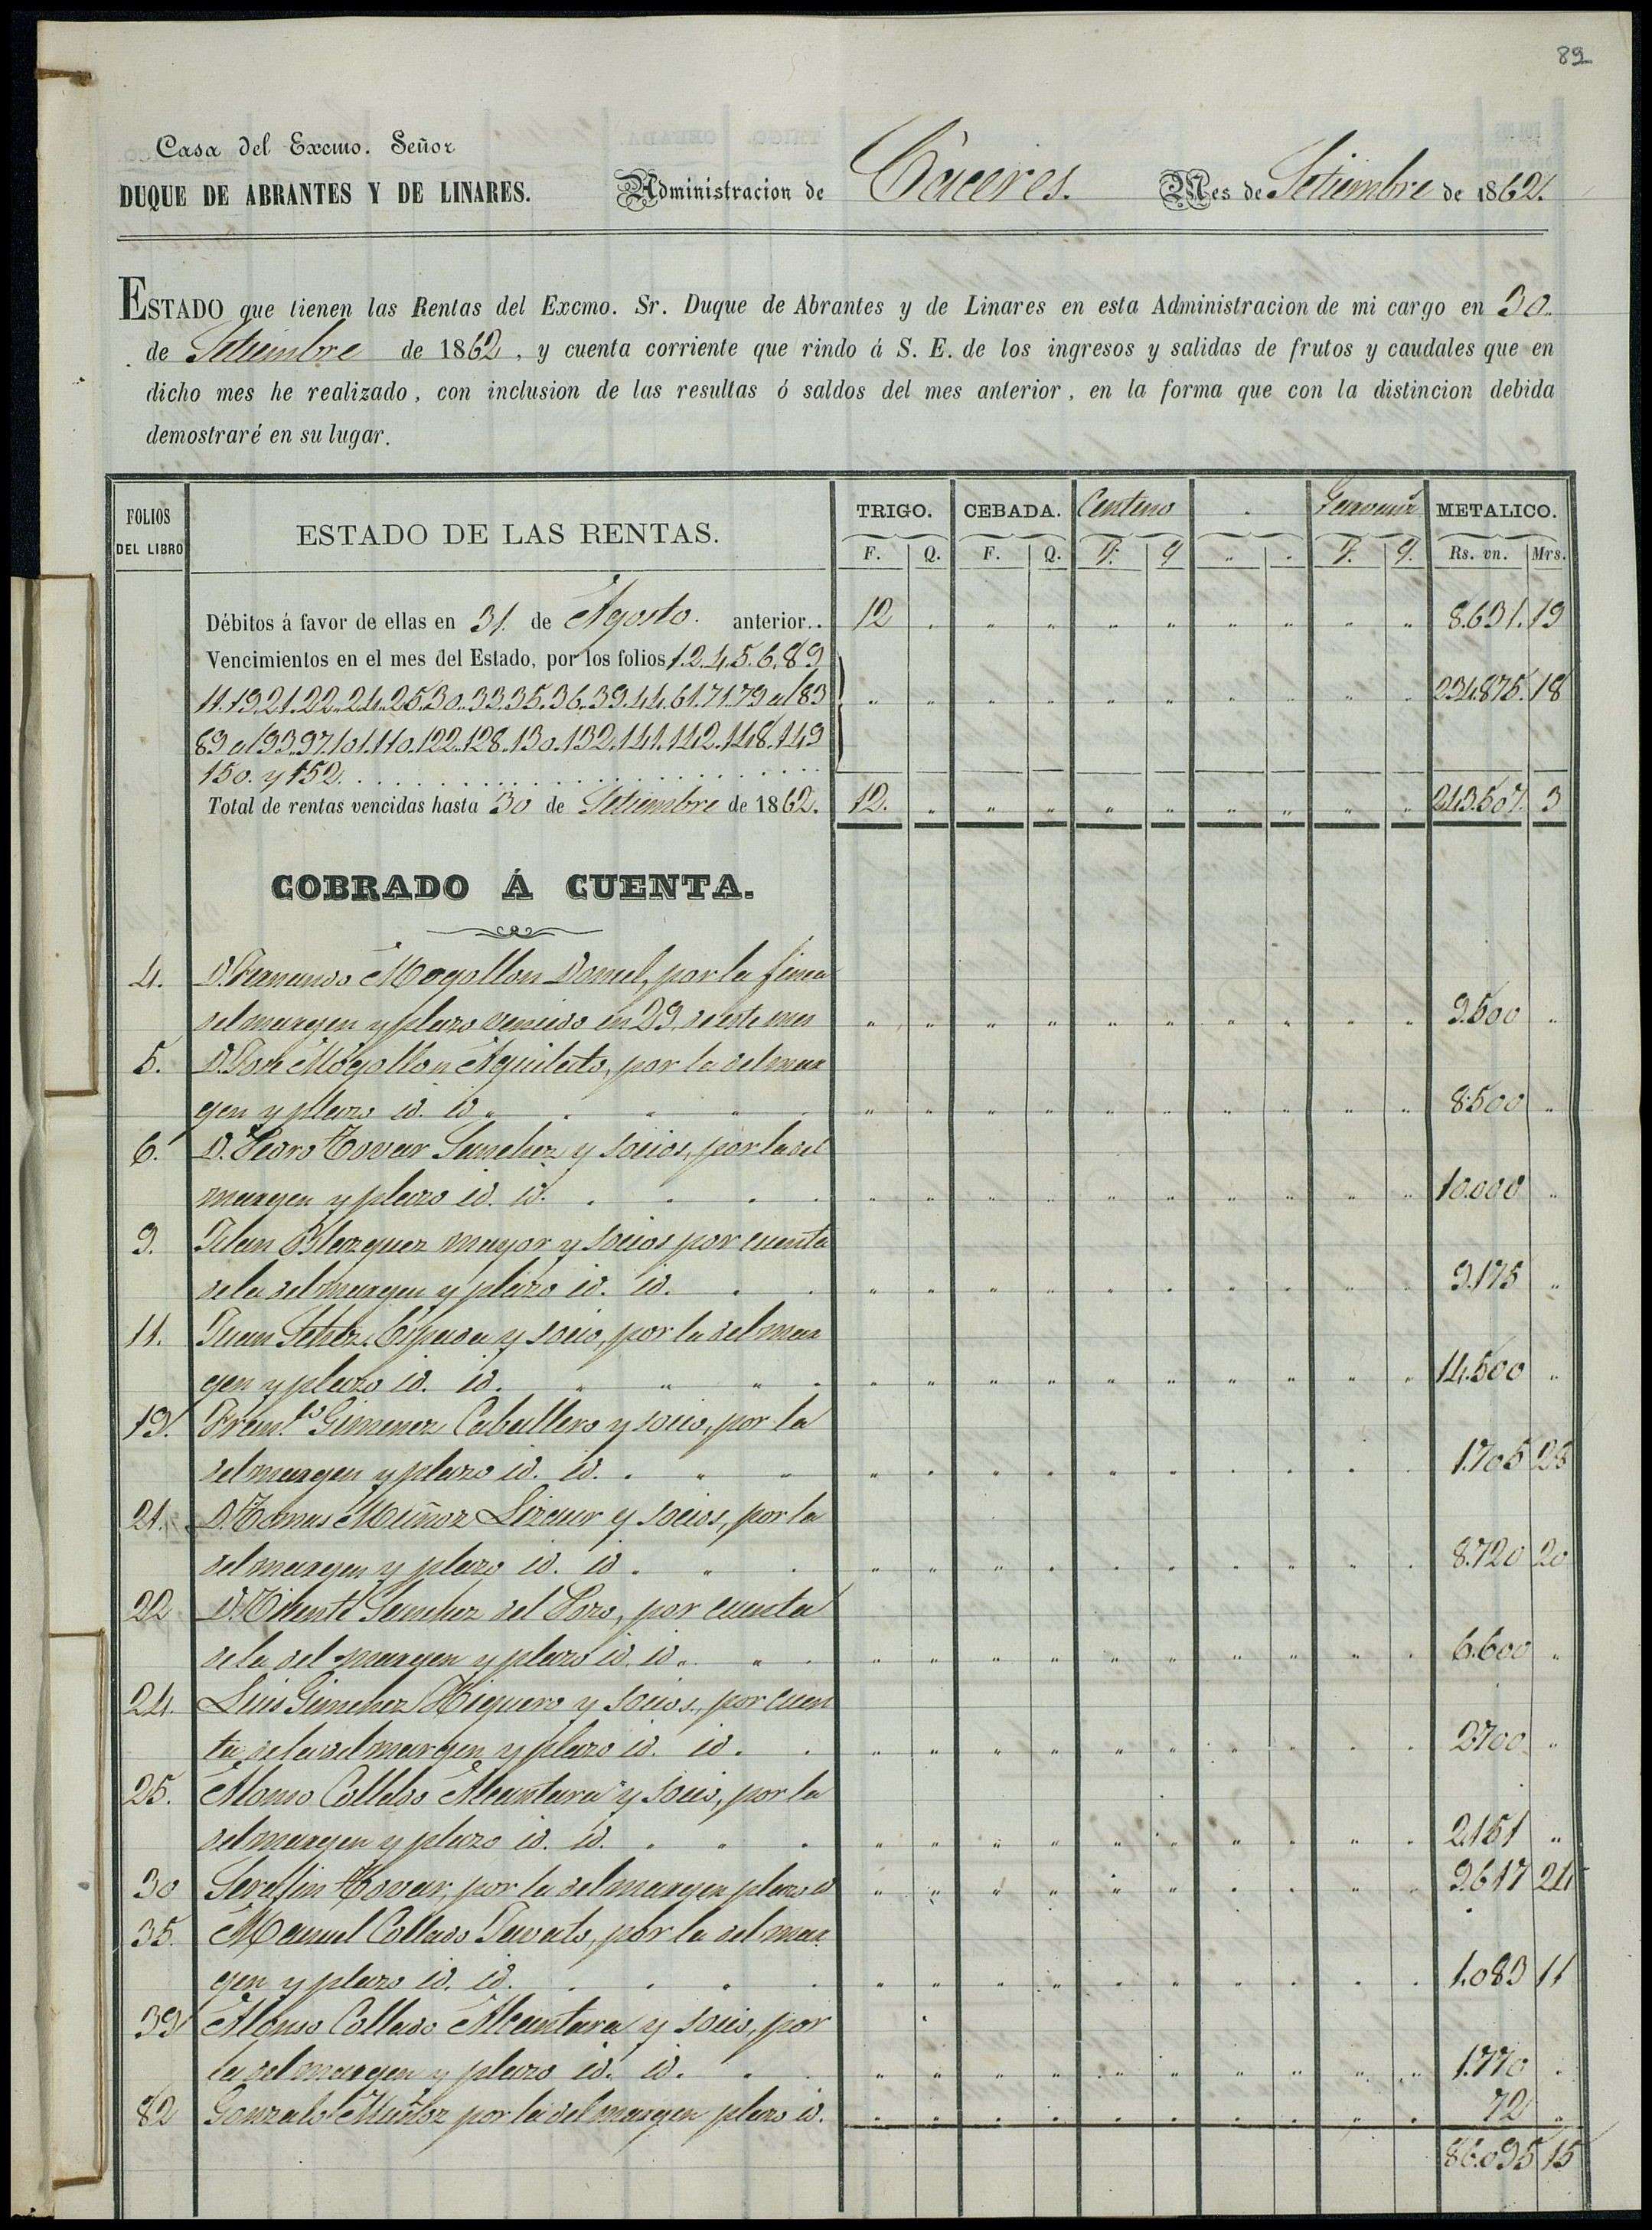 89
Casa del Excmo. Señor
DUQUE DE ABRANTES Y DE LINARES. Administracion de Cáceres. Mes de Setiembre de 1862.
ESTADO que tienen las Rentas del Excmo. Sr. Duque de Abrantes y de Linares en esta Administracion de mi cargo en 30.
de Setiembre de 1862, y cuenta corriente que rindo á S. E. de los ingresos y salidas de frutos y caudales que en
dicho mes he realizado, con inclusion de las resultas ó saldos del mes anterior, en la forma que con la distincion debida
demostraré en su lugar.
FOLIOS DEL LIBRO ESTADO DE LAS RENTAS. TRIGO. CEBADA. Centeno METALICO.
F. Q. F. Q. F. Q. " " F. Q. Rs. vn. Mrs.
Débitos á favor de ellas en 31. de Agosto. anterior.. 12 " " " " " " " " " 8.631. 19
Vencimientos en el mes del Estado, por los folios 1.2.4.5.6.8.9
11.19.21.22.24.25.30.33.35.36.39.44.61.71.79 al 83 " " " " " " " " " " 234.875. 18
89 al 93.97.101.110.122.128.130.132.141.142.148.149
150. y 152.
Total de rentas vencidas hasta 30 de Setiembre de 1862. 12. " " " " " " " " " 243.507. 3
COBRADO Á CUENTA.
4. D. Fernando Mogollon Doncel, por la finca
del margen y plazo vencido en 29 de este mes " " " " " " " " " " 9.500 "
5. D. José Mogollon Aguilato, por la del mar
gen y plazo id. id. " " " " " " " " " " 8.500 "
6. D. Pedro Tovar Sanchez y socios, por la del
margen y plazo id. id. " " " " " " " " " " 10.000 "
9. Julan Blazquez mayor y socios por cuenta
de la del margen y plazo id. id. " " " " " " " " " " 9.175 "
11. Juan y socio, por la del mar
gen y plazo id. id. " " " " " " " " " " 14.500 "
19. Gimenez Caballero y socio, por la
del margen y plazo id. id. " " " " " " " " " " 1.705 28
21. D. Tomas Muñoz Lizaur y socios, por la
del margen y plazo id. id. " " " " " " " " " " 8.720 20
22 D. Vicente Sanchez del Pozo, por cuenta
de la del margen y plazo id. id. " " " " " " " " " " 6.600 "
24. Luis Gimenez Higuero y socios, por cuen
ta de la del margen y plazo id. id. " " " " " " " " " " 2.700 "
25. Alonso Collado Alcantara y socio, por la
del margen y plazo id. id. " " " " " " " " " " 2.151 "
30 Serafin Tovar, por la del margen plazo id " " " " " " " " " " 9.617 24
35. Manuel Collado Jabato, por la del mar
gen y plazo id. id. " " " " " " " " " " 1.083 11
39 Alonso Collado Alcantara y socio, por
la del margen y plazo id. id. " " " " " " " " " " 1.770 "
82 Gonzalo Muñoz por la del margen plazo id. " " " " " " " " " " 72 "
86.095 15